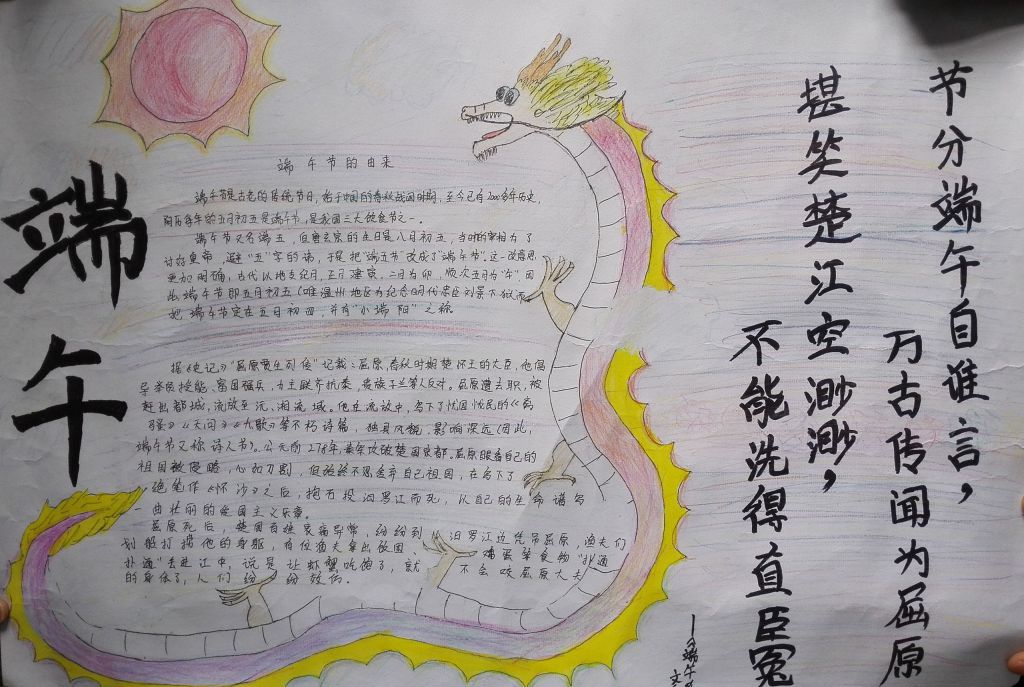 端午
端午节的由来
端午节是古老的传统节日,始于中国的春秋战国时期,至今已有2000多年历史,
阴历每年的五月初五是端午节,是我国三大传统节之一。
端午节又名端五,但唐玄宗的生日是八月初五,当时的宰相为了
讨好皇帝 避“五”字的讳,于是把“端五节”改成了“端午节”。这一改意思
更加明确,古代以地支纪月,正月建寅,二月为卯,顺次五月为“午”。因
此端午节即五月初五(唯温州地区为纪念明代忠臣刘景下狱而
把端午节定在五月初四,并有“小端阳”之称
据《史记》“屈原贾生列传”记载:屈原,春秋时期楚怀王的大臣,他倡
导举贤授能,富国强兵,力主联齐抗秦,贵族子兰等人反对。屈原遭去职,被
赶出都城,流放至沅、湘流域。他在流放中,写下了忧国忧民的《离
骚》《天问》《九歌》等不朽诗篇,独具风貌,影响深远(因此,
端午节又称诗人节)。公元前278年,秦军攻破楚国京都。屈原眼看自己的
祖国被侵略,心如刀割,但始终不忍舍弃自己祖国,在写下了
绝笔作《怀沙》之后,抱石投汨罗江而死,以自己的生命谱写
曲壮丽的爱国主义乐章。
屈原死后,楚国百姓哀痛异常,纷纷到汨罗江边凭吊屈原,渔夫们
划船打捞他的身躯,有位渔夫拿出饭团、鸡蛋等食物“扑通
扑通”丢进江中,说是让虾蟹吃饱了,就不会咬屈原大夫
的身体了,人们纷纷效仿。
节分端午自谁言,
万古传闻为屈原
堪笑楚江空渺渺,
不能洗得直臣冤
端午
文